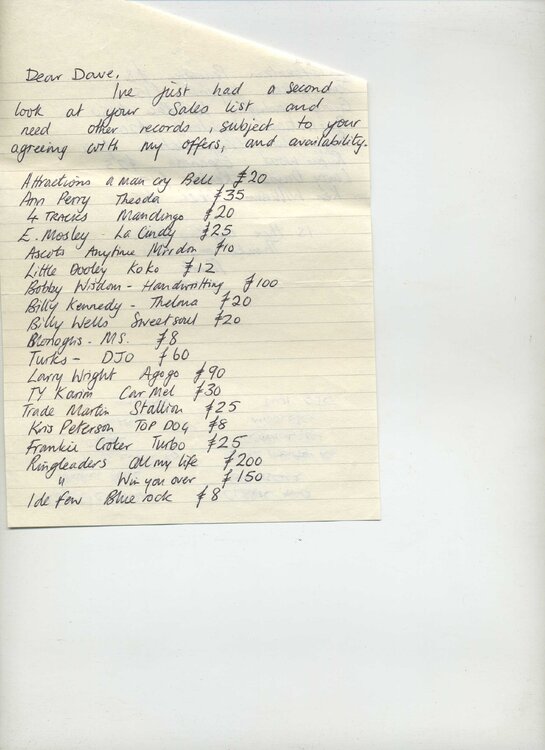 Dear Dave,
I've just had a second
look at your Sales list and
need other records, subject to your
agreeing with my offers, and availability.
Attractions a man cry Bell £20
Ann Perry Theoda £35
4 TRACKS Mandingo £20
E. Mosley - La Cindy £25
Ascots Anytime Mirdon £10
Little Dooley KoKo £12
Bobby Wisdom - Handwritting £100
Billy Kennedy - Thelma £20
Billy Wells Sweetsoul £20
M.S. £8
Turks - DJO £60
Larry Wright Agogo £90
TY Karim Car Mel £30
Trade Martin Stallion £25
Kris Peterson TOP DOG £8
Frankie Croker Turbo £25
Ringleaders All my life £200
" Win you over £150
Ide few Blue rock £8